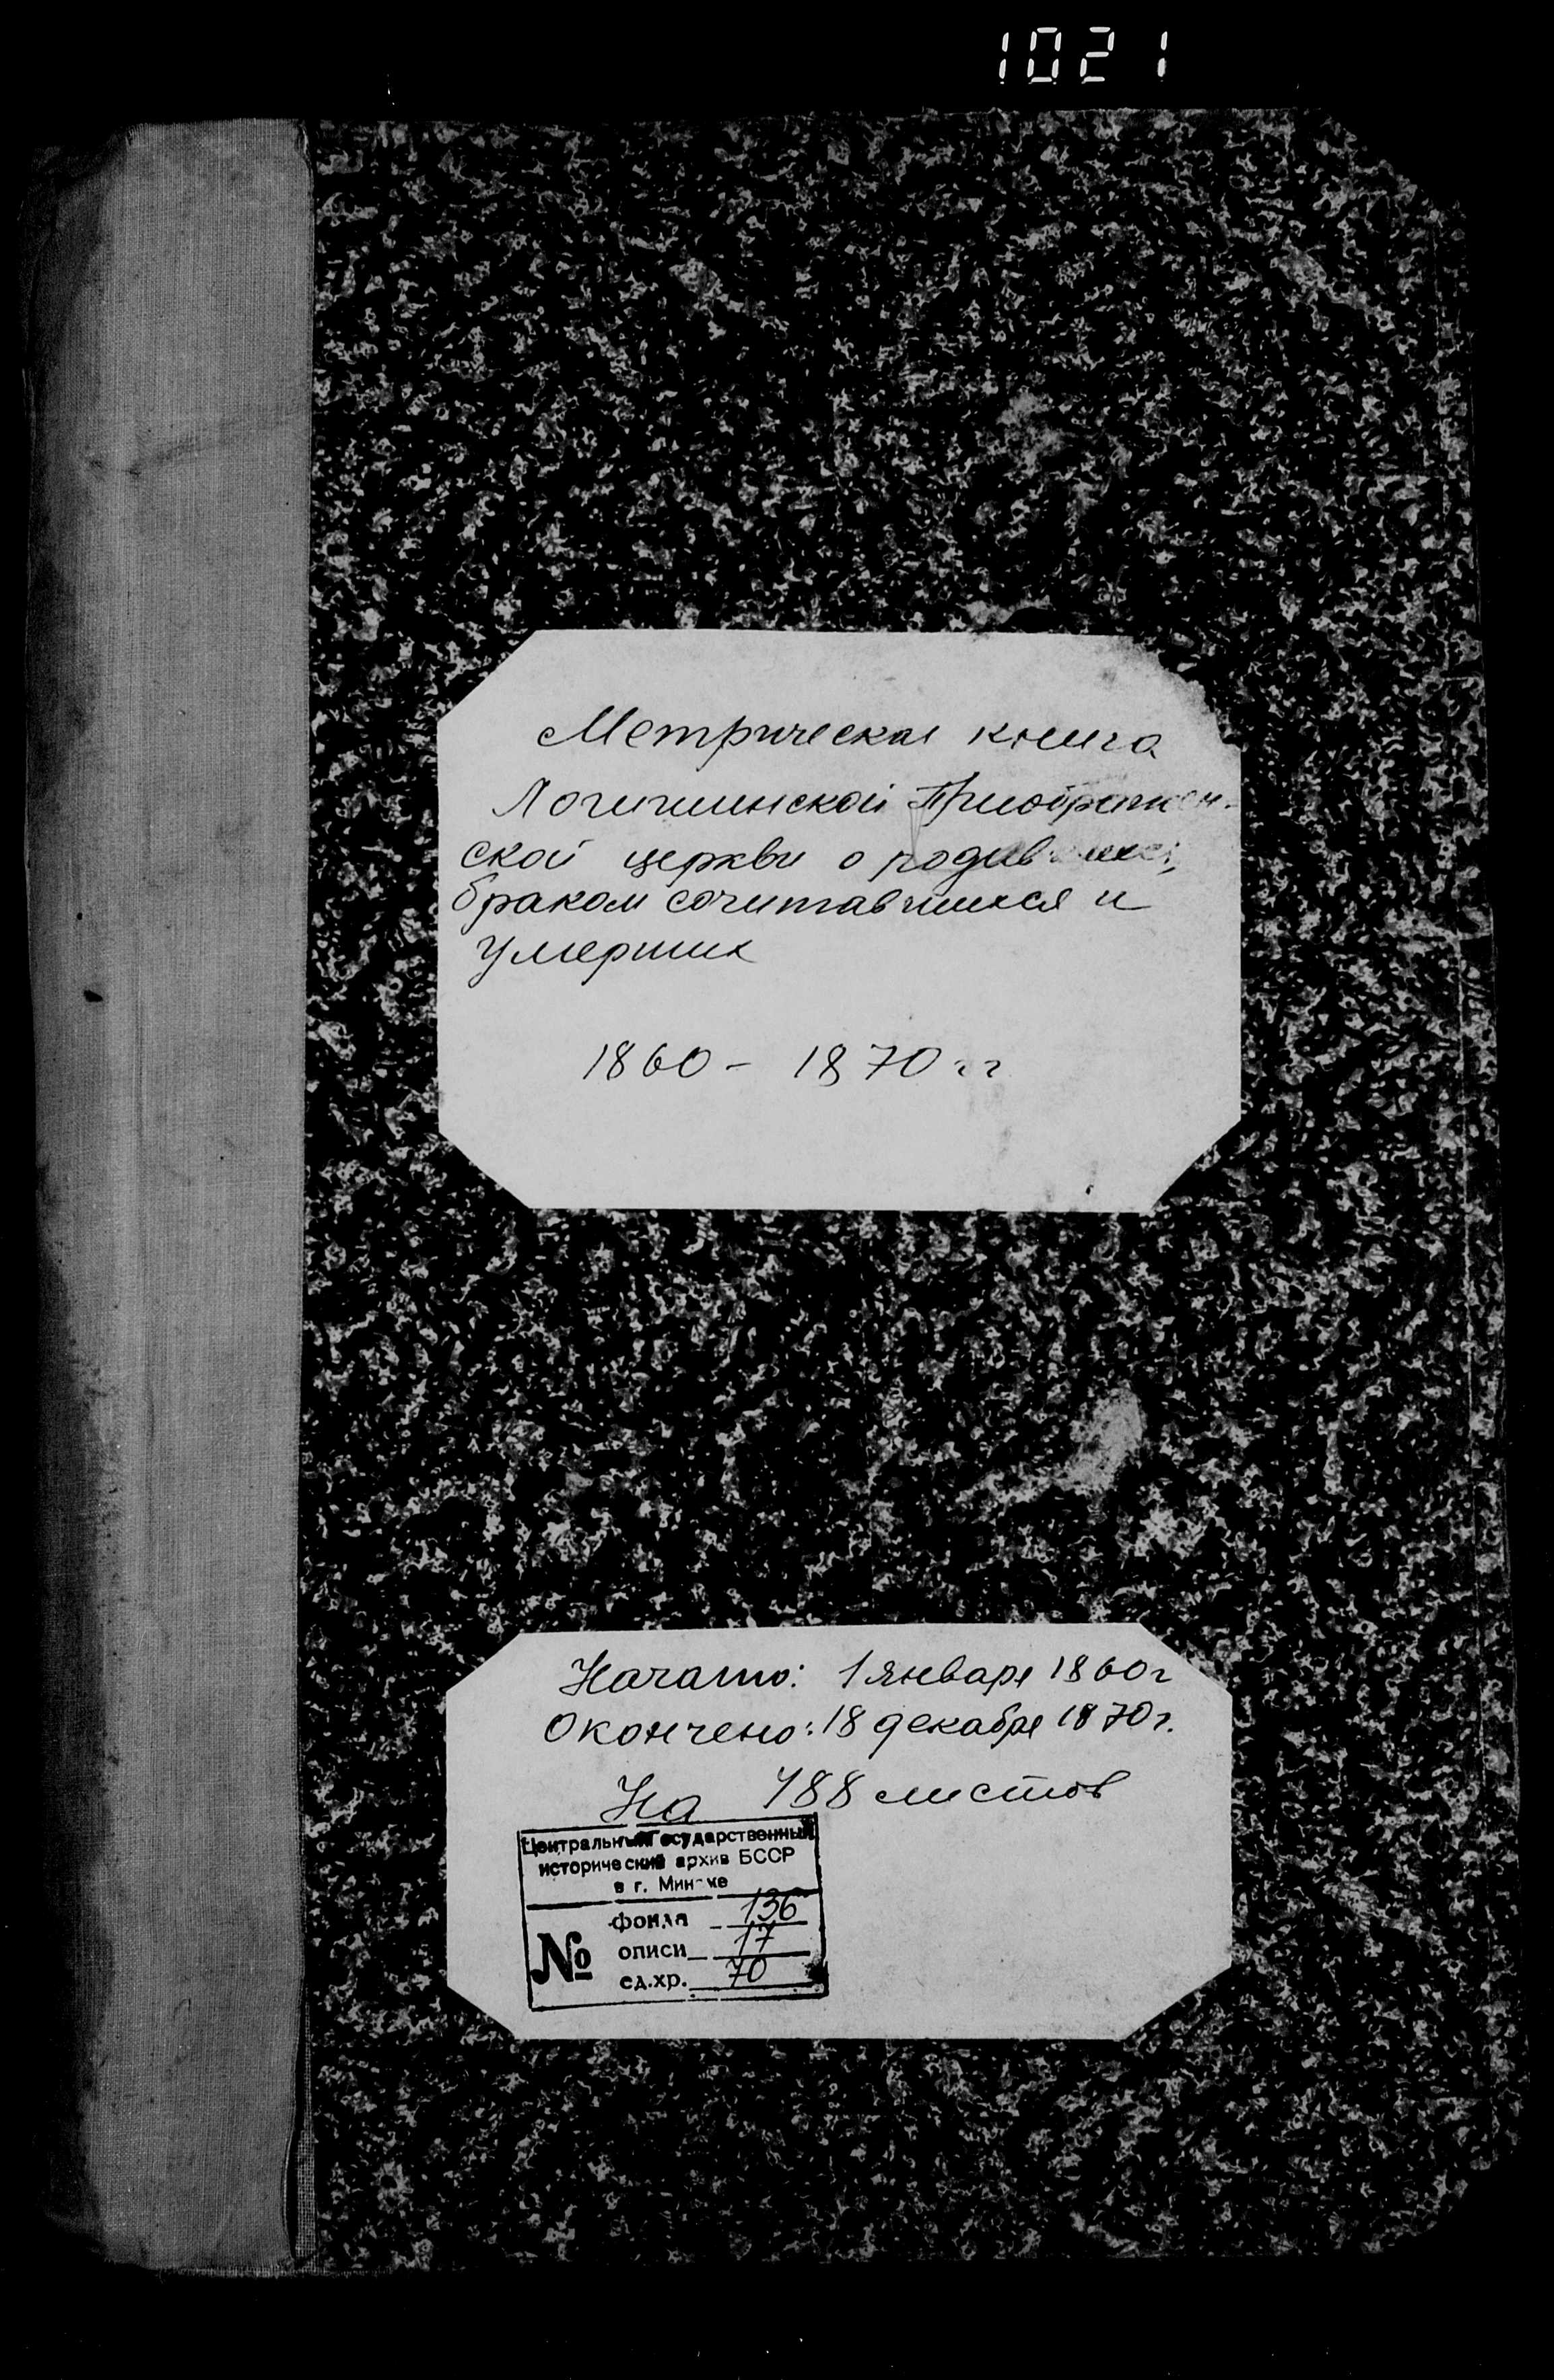 1021
Метрическая книга
Логишинской Приображен-
ской церкви о родившихся,
браком сочитавшихся и
умерших
1860 - 1870 гг
Начато: 1 января 1860г
Окончено: 18 декабря 1870г.
На 488 листов
Центральный Государственный
исторический архив БССР
в г. Минске
№
фонда 136
описи 17
ед.хр. 70